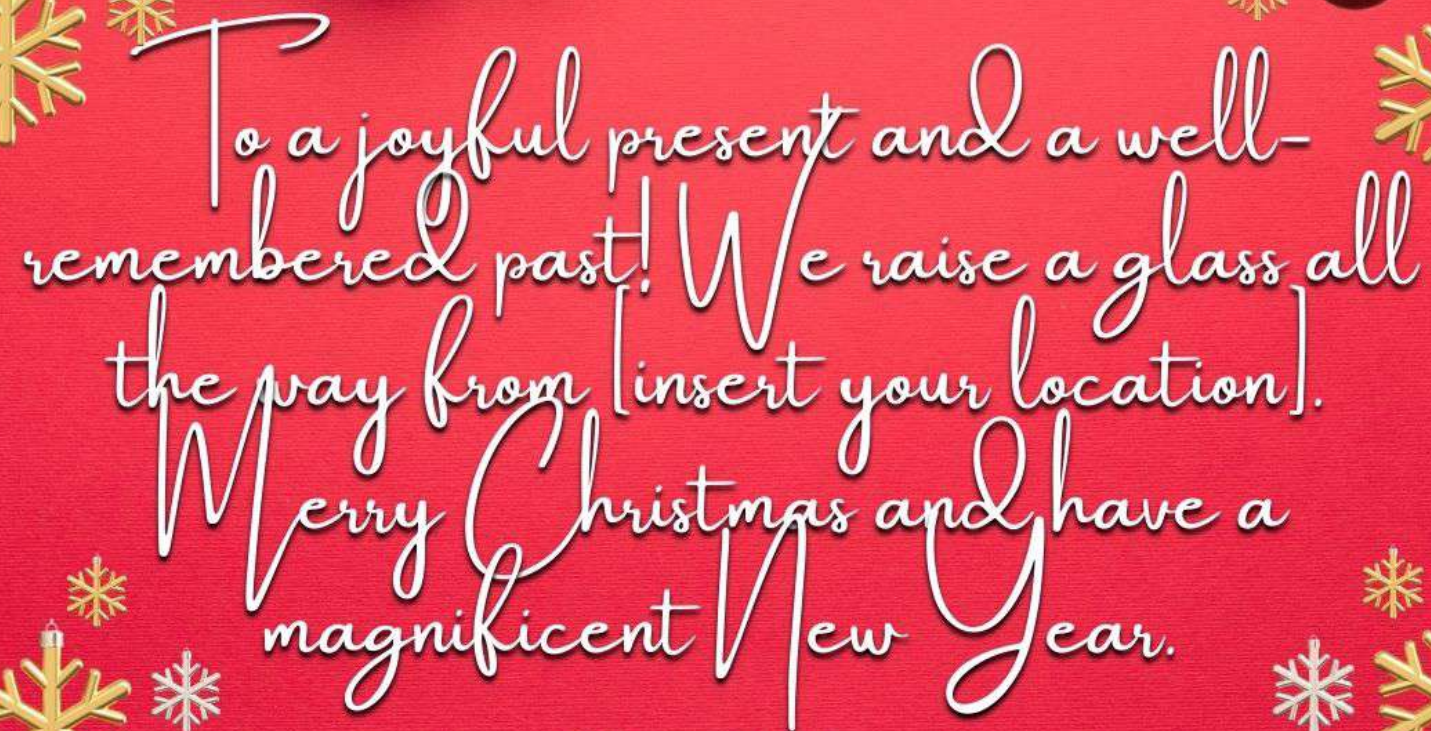 To a joyful present and a well-
remembered past! We raise a glass all
the way from [insert your location].
Merry Christmas and have a
magnificent New Year.